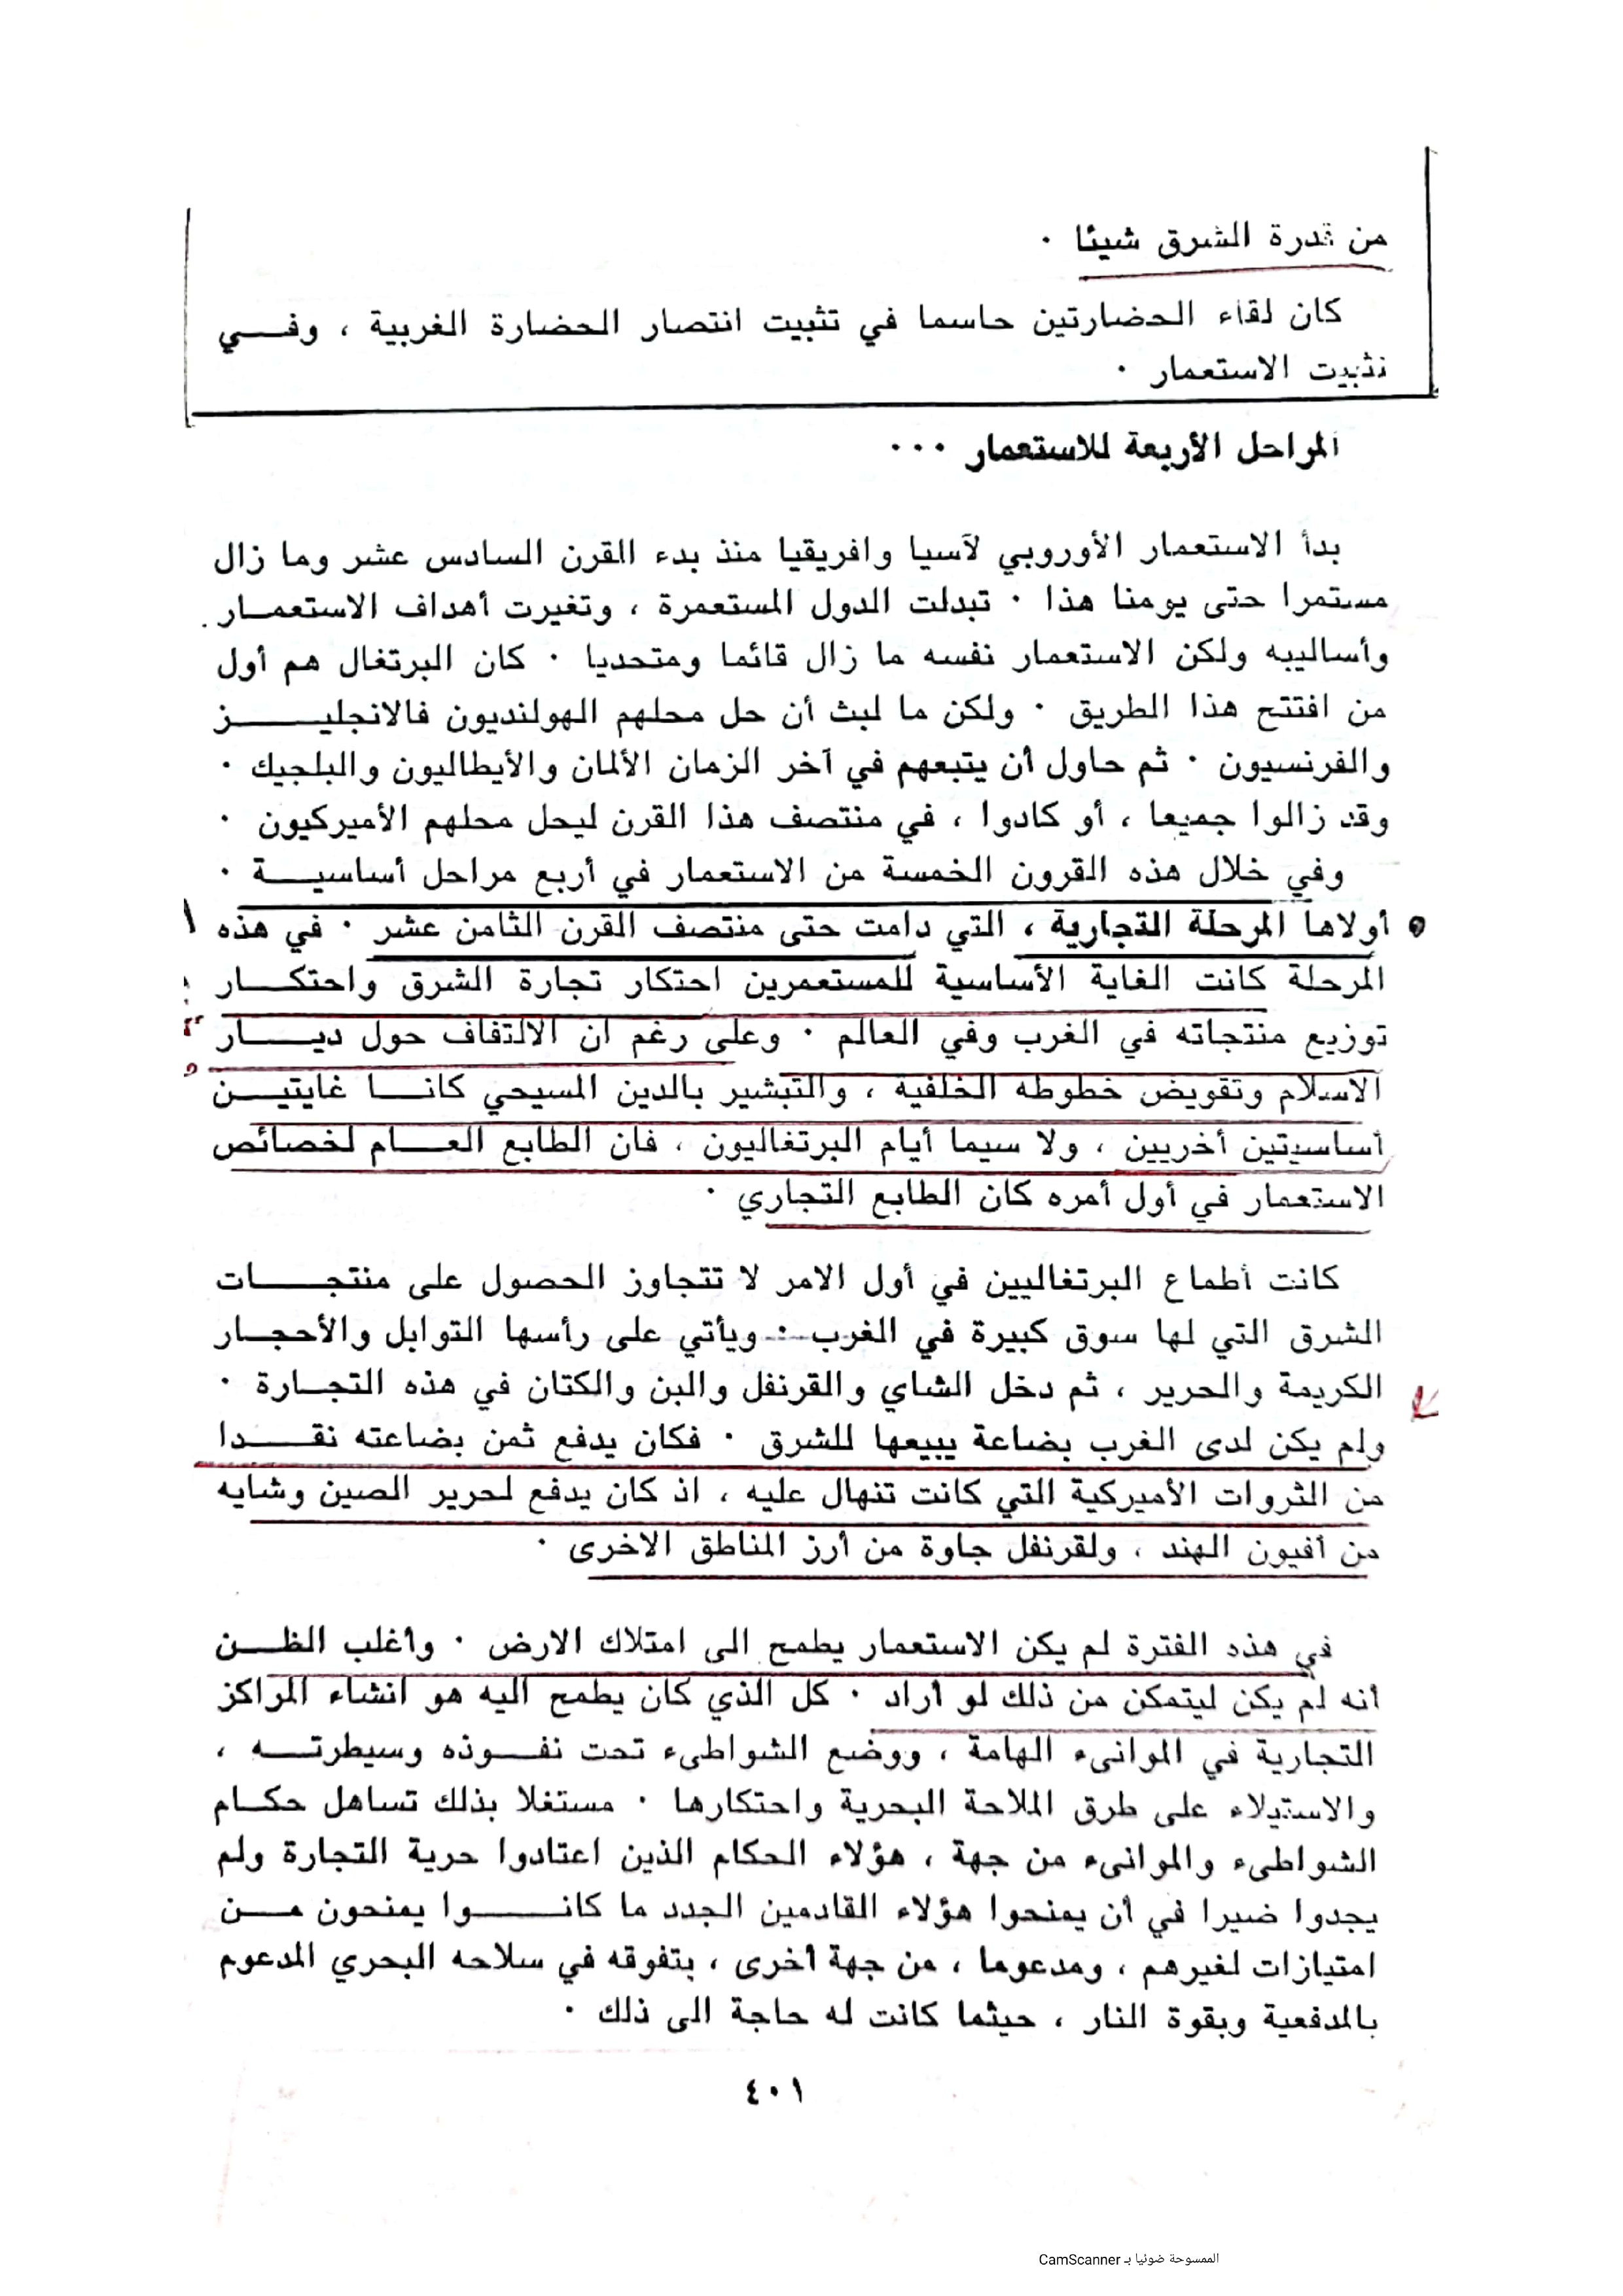 من قدرة الشرق شيئا ٠
كان لقاء الحضارتين حاسما في تثبيت انتصار الحضارة الغربية ، وفـــي
تثبيت الاستعمار ٠
المراحل الأربعة للاستعمار ٠٠٠
بدأ الاستعمار الأوروبي لآسيا وافريقيا منذ بدء القرن السادس عشر وما زال
مستمرا حتى يومنا هذا ٠ تبدلت الدول المستعمرة ، وتغيرت أهداف الاستعمـار
وأساليبه ولكن الاستعمار نفسه ما زال قائما ومتحديا ٠ كان البرتغال هم أول
من افتتح هذا الطريق ٠ ولكن ما لبث أن حل محلهم الهولنديون فالانجليــــز
والفرنسيون ٠ ثم حاول أن يتبعهم في آخر الزمان الألمان والأيطاليون والبلجيك ٠
وقد زالوا جميعا ، أو كادوا ، في منتصف هذا القرن ليحل محلهم الأميركيون ٠
وفي خلال هذه القرون الخمسة من الاستعمار في أربع مراحل أساسيـــة ٠
أولاها المرحلة التجارية ، التي دامت حتى منتصف القرن الثامن عشر ٠ في هذه ١
المرحلة كانت الغاية الأساسية للمستعمرين احتكار تجارة الشرق واحتكـــار
توزيع منتجاته في الغرب وفي العالم ٠ وعلى رغم ان الالتفاف حول ديـــار
الاسلام وتقويض خطوطه الخلفية ، والتبشير بالدين المسيحي كانـــا غايتيـــن
أساسيتين أخريين ، ولا سيما أيام البرتغاليون ، فان الطابع العـــام لخصائص
الاستعمار في أول أمره كان الطابع التجاري ٠
كانت أطماع البرتغاليين في أول الامر لا تتجاوز الحصول على منتجـــات
الشرق التي لها سوق كبيرة في الغرب ٠ ويأتي على رأسها التوابل والأحجـار
الكريمة والحرير ، ثم دخل الشاي والقرنفل والبن والكتان في هذه التجـارة ٠
ولم يكن لدى الغرب بضاعة يبيعها للشرق ٠ فكان يدفع ثمن بضاعته نقـــدا
من الثروات الأميركية التي كانت تنهال عليه ، اذ كان يدفع لحرير الصين وشايه
من أفيون الهند ، ولقرنفل جاوة من أرز المناطق الاخرى ٠
في هذه الفترة لم يكن الاستعمار يطمح الى امتلاك الارض ٠ وأغلب الظـــن
أنه لم يكن ليتمكن من ذلك لو أراد ٠ كل الذي كان يطمح اليه هو انشاء المراكز
التجارية في الموانىء الهامة ، ووضع الشواطىء تحت نفـوذه وسيطرتـــه ،
والاستيلاء على طرق الملاحة البحرية واحتكارها ٠ مستغلا بذلك تساهل حكـام
الشواطىء والموانىء من جهة ، هؤلاء الحكام الذين اعتادوا حرية التجارة ولم
يجدوا ضيرا في أن يمنحوا هؤلاء القادمين الجدد ما كانـــــوا يمنحون مـــن
امتيازات لغيرهم ، ومدعوما ، من جهة أخرى ، بتفوقه في سلاحه البحري المدعوم
بالمدفعية وبقوة النار ، حيثما كانت له حاجة الى ذلك ٠
٤٠١
الممسوحة ضوئيا بـ CamScanner